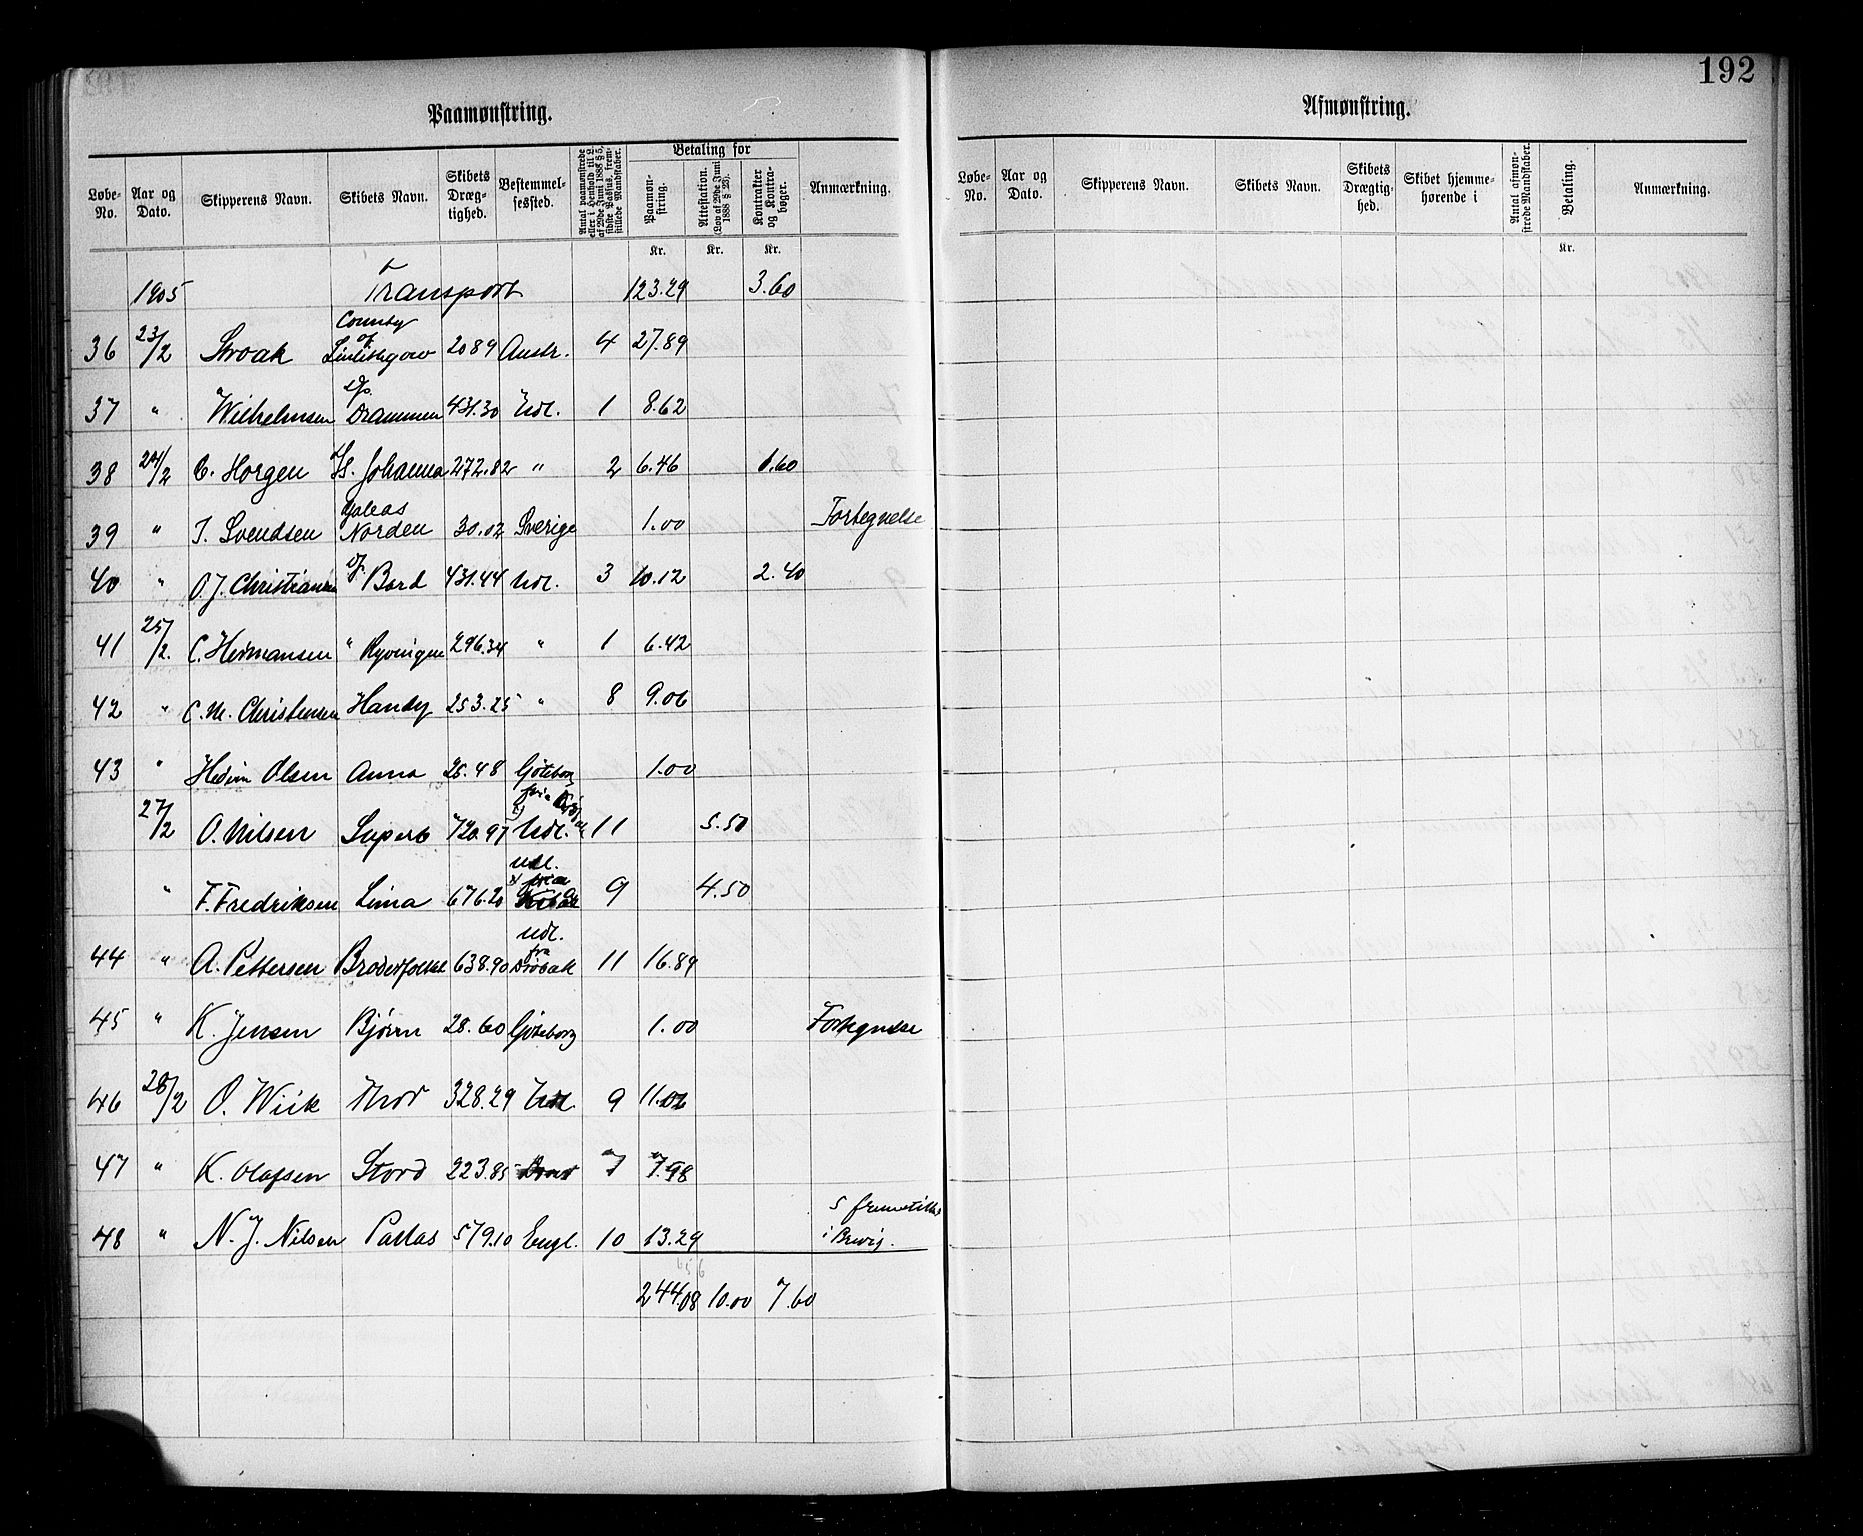 192
Paamønstring.
Løbe-No. | Aar og Dato. | Skipperens Navn. | Skibets Navn. | Skibets Dræg-tighed. | Bestemmel-sessted. | Antal paamønstrede eller i Henhold til L. af 29de Juni 1888 § 5, sidste Passus, frem-stillede Mandskaber. | Betaling for | Paamøn-string. | Attestation. (Lov af 29de Juni 1888 § 23). | Kontrakter og Kontra-bøger. | Anmærkning.
Kr. | Kr. | Kr.
1905 | Transport | 123.29 | 3.60
36 | 23/2 | Stroak | County of Linlithgow | 2089 | Austr. | 4 | 27.89
37 | " | Wilhelmsen | D/s. Drammen | 431.30 | Udl. | 1 | 8.62
38 | 24/2 | C. Horgen | Johanna | 272.82 | " | 2 | 6.46 | 1.60
39 | " | T. Svendsen | Galeas Norden | 30.02 | Sverige | 1.00 | Fortegnelse
40 | " | O. J. Christiansen | Bard | 431.44 | Udl. | 3 | 10.12 | 2.40
41 | 25/2. | C. Hermansen | " Ryvingen | 296.34 | " | 1 | 6.42
42 | " | C. M. Christensen | Handy | 253.25 | " | 8 | 9.06
43 | " | Olsen | Anna | 26.48 | Gøteborg | 1.00
27/2 | O. Nilsen | Superb | 720.97 | Udl. fra | 11 | 5.50
" | F. Fredriksen | Lima | 676.20 | Udl. fra | 9 | 4.50
44 | " | A. Pettersen | Broderfolket | 638.90 | Udl. fra Drøbak | 11 | 16.89
45 | " | K. Jensen | Bjørn | 28.60 | Gøteborg | 1.00 | Fortegnelse
46 | 28/2 | O. Wiik | Thor | 328.29 | Udl. | 9 | 11.06
47 | " | K. Olafsen | Stord | 223.85 | 7 | 7.98
48 | " | N. J. Nilsen | Pallas | 579.10 | Engl. | 10 | 13.29 | 5 fremstillet i Brevig.
244.08 | 10.00 | 7.60
Afmønstring.
Løbe-No. | Aar og Dato. | Skipperens Navn. | Skibets Navn. | Skibets Drægtig-hed. | Skibet hjemme-hørende i | Antal afmøn-strede Mandskaber. | Betaling. | Anmærkning.
Kr.